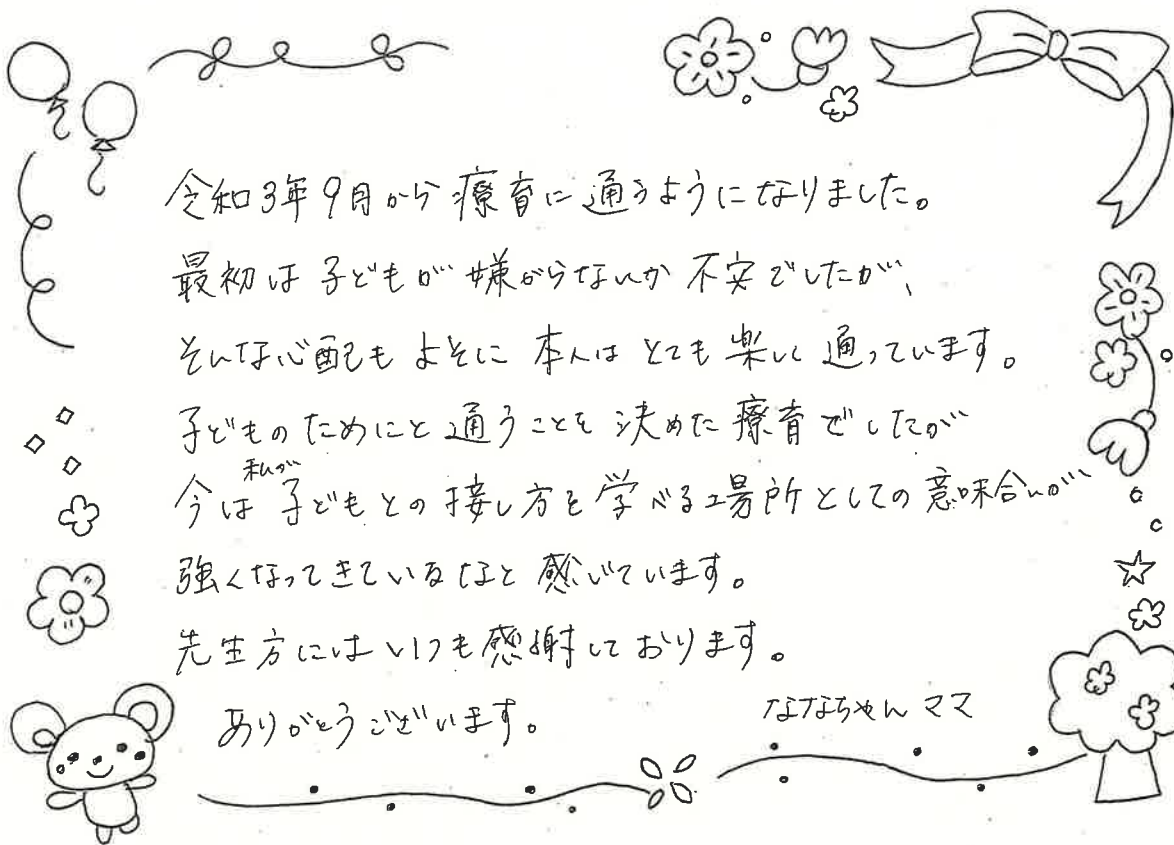 令和3年9月から療育に通うようになりました。
最初は子どもが嫌がらないか不安でしたが、
そんな心配もよそに本人はとても楽しく通っています。
子どものためにと通うことを決めた療育でしたが
今は私が子どもとの接し方を学べる場所としての意味合いが
強くなってきているなと感じています。
先生方にはいつも感謝しております。
ありがとうございます。
ななちゃんママ